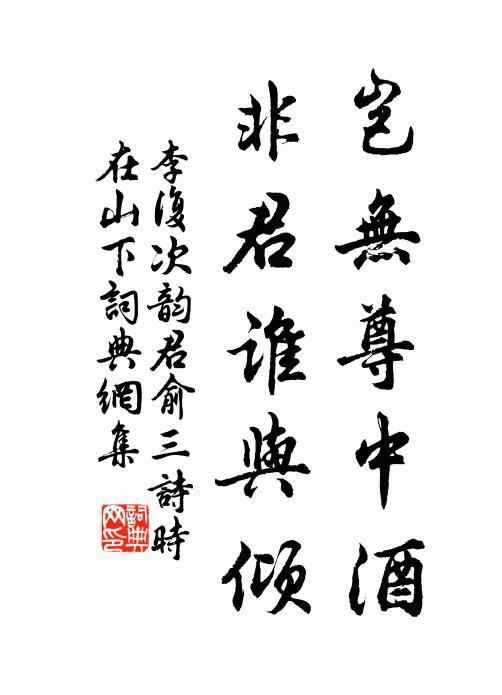 豈無尊中酒
非君誰與傾
李復次韵君俞三詩時
在山下詞典網集
詞典
网印